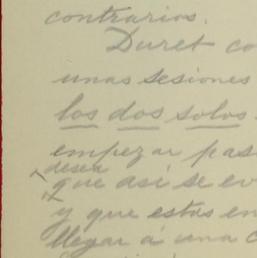 contrarios.
Duret co
unas sesiones
los dos solos
empezar pas
desea
que asi se ev
y que estas en
llegar á una c